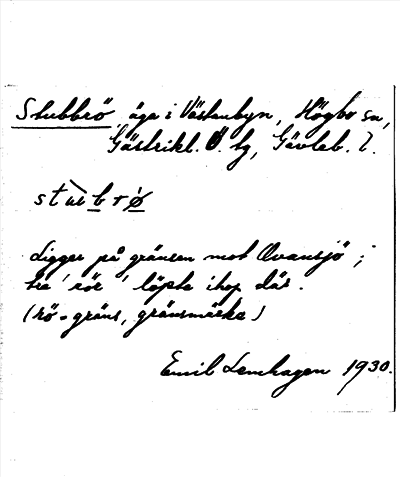 Stubbrö, äga i Västanbyn, Högbo sn,
Gästrikl. Ö. tg, Gävleb. l.
Ligger på gränsen mot Ovansjö;
tre 'rör' löpte ihop där.
(rö = gräns, gränsmärke)
Emil Lenhagen 1930.